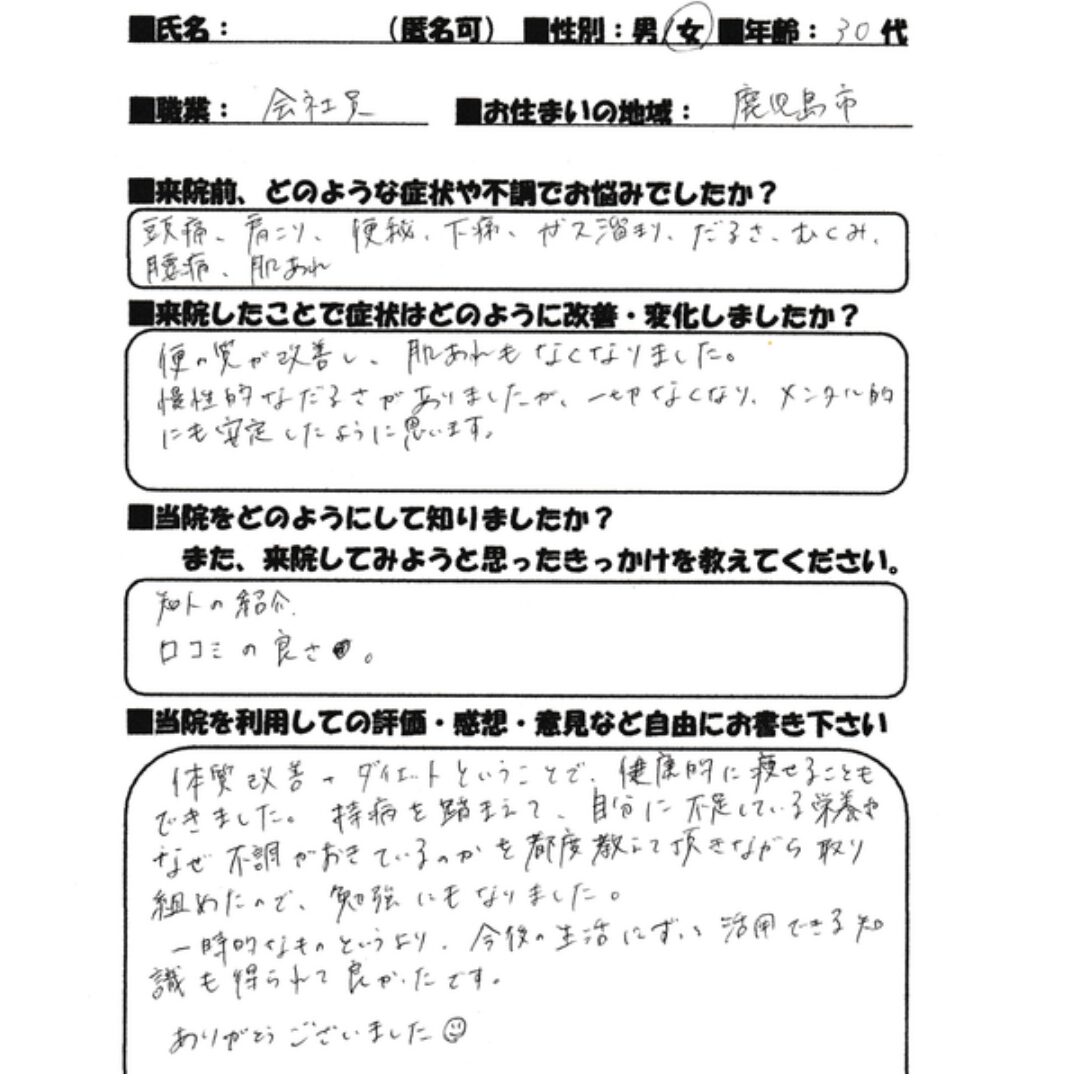 ■氏名： （匿名可） ■性別：男/女 ■年齢：30代
■職業：会社員 ■お住まいの地域：鹿児島市
■来院前、どのような症状や不調でお悩みでしたか？
頭痛、肩こり、便秘、下痢、ガス溜まり、だるさ、むくみ、
腰痛、肌あれ
■来院したことで症状はどのように改善・変化しましたか？
便の質が改善し、肌あれもなくなりました。
慢性的なだるさがありましたが、一切なくなり、メンタル的
にも安定したように思います。
■当院をどのようにして知りましたか？
また、来院してみようと思ったきっかけを教えてください。
知人の紹介.
口コミの良さ。
■当院を利用しての評価・感想・意見など自由にお書き下さい
体質改善+ダイエットということで、健康的に痩せることも
できました。持病を踏まえて、自分に不足している栄養や
なぜ不調がおきているのかを都度教えて頂きながら取り
組めたので、勉強にもなりました。
一時的なものというより、今後の生活にずっと活用できる知
識も得られて良かったです。
ありがとうございました☺